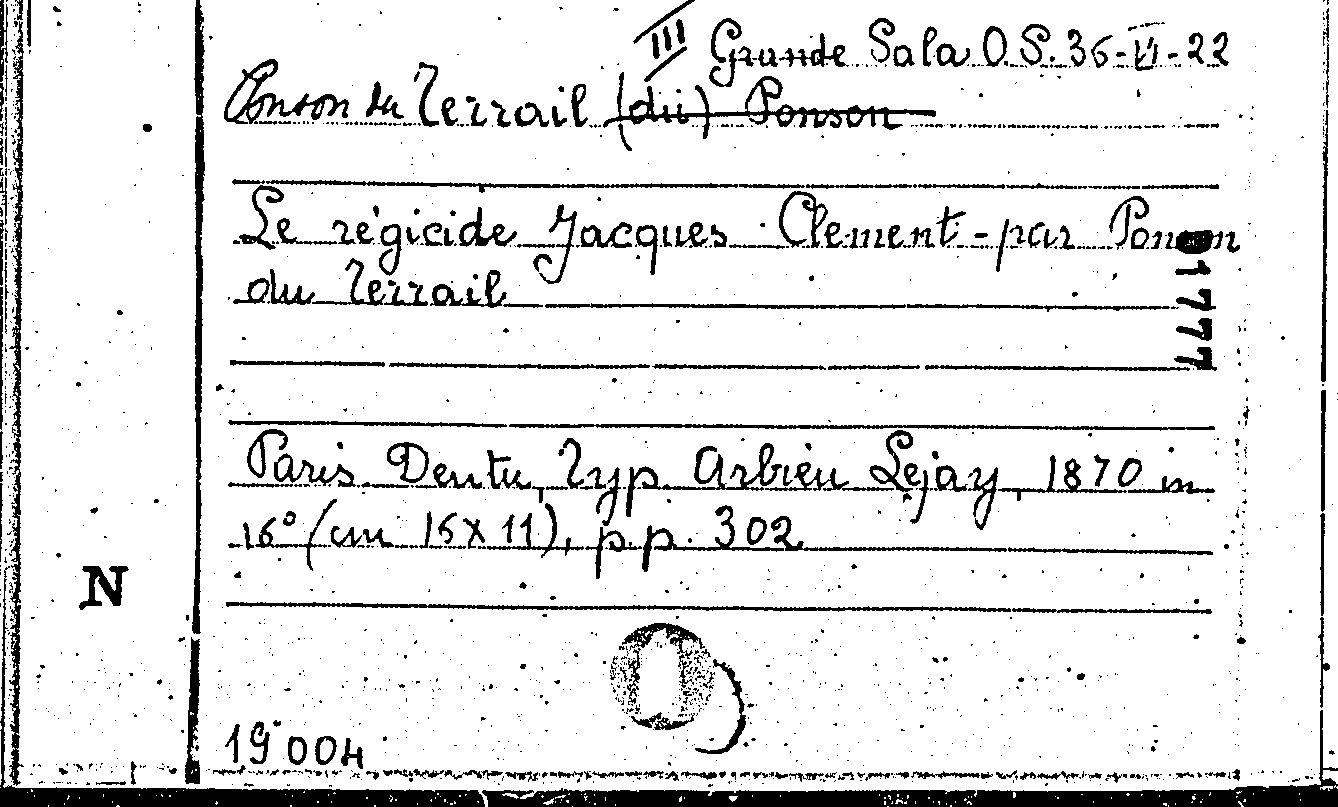 III Grande Sala O.S. 36-VI-22
Ponson du Terrail (du) Ponson
Le régicide Jacques Clement - par Ponson
du Terrail
01777
Paris. Dentu, Typ. Arbieu Lejay, 1870 in
16° (cm 15x11), p.p. 302
N
19004